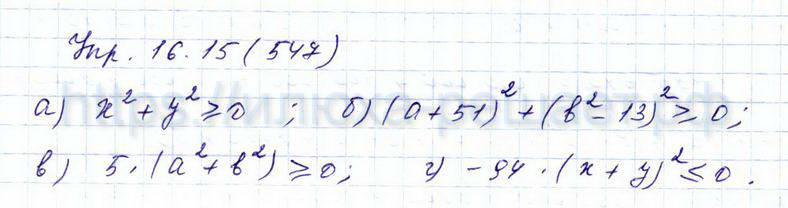 Упр. 16.15 (547)
а) x² + y² ≥ 0 ; б) (a + 51)² + (b² - 13)² ≥ 0;
в) 5 · (a² + b²) ≥ 0; г) - 94 · (x + y)² ≤ 0 .